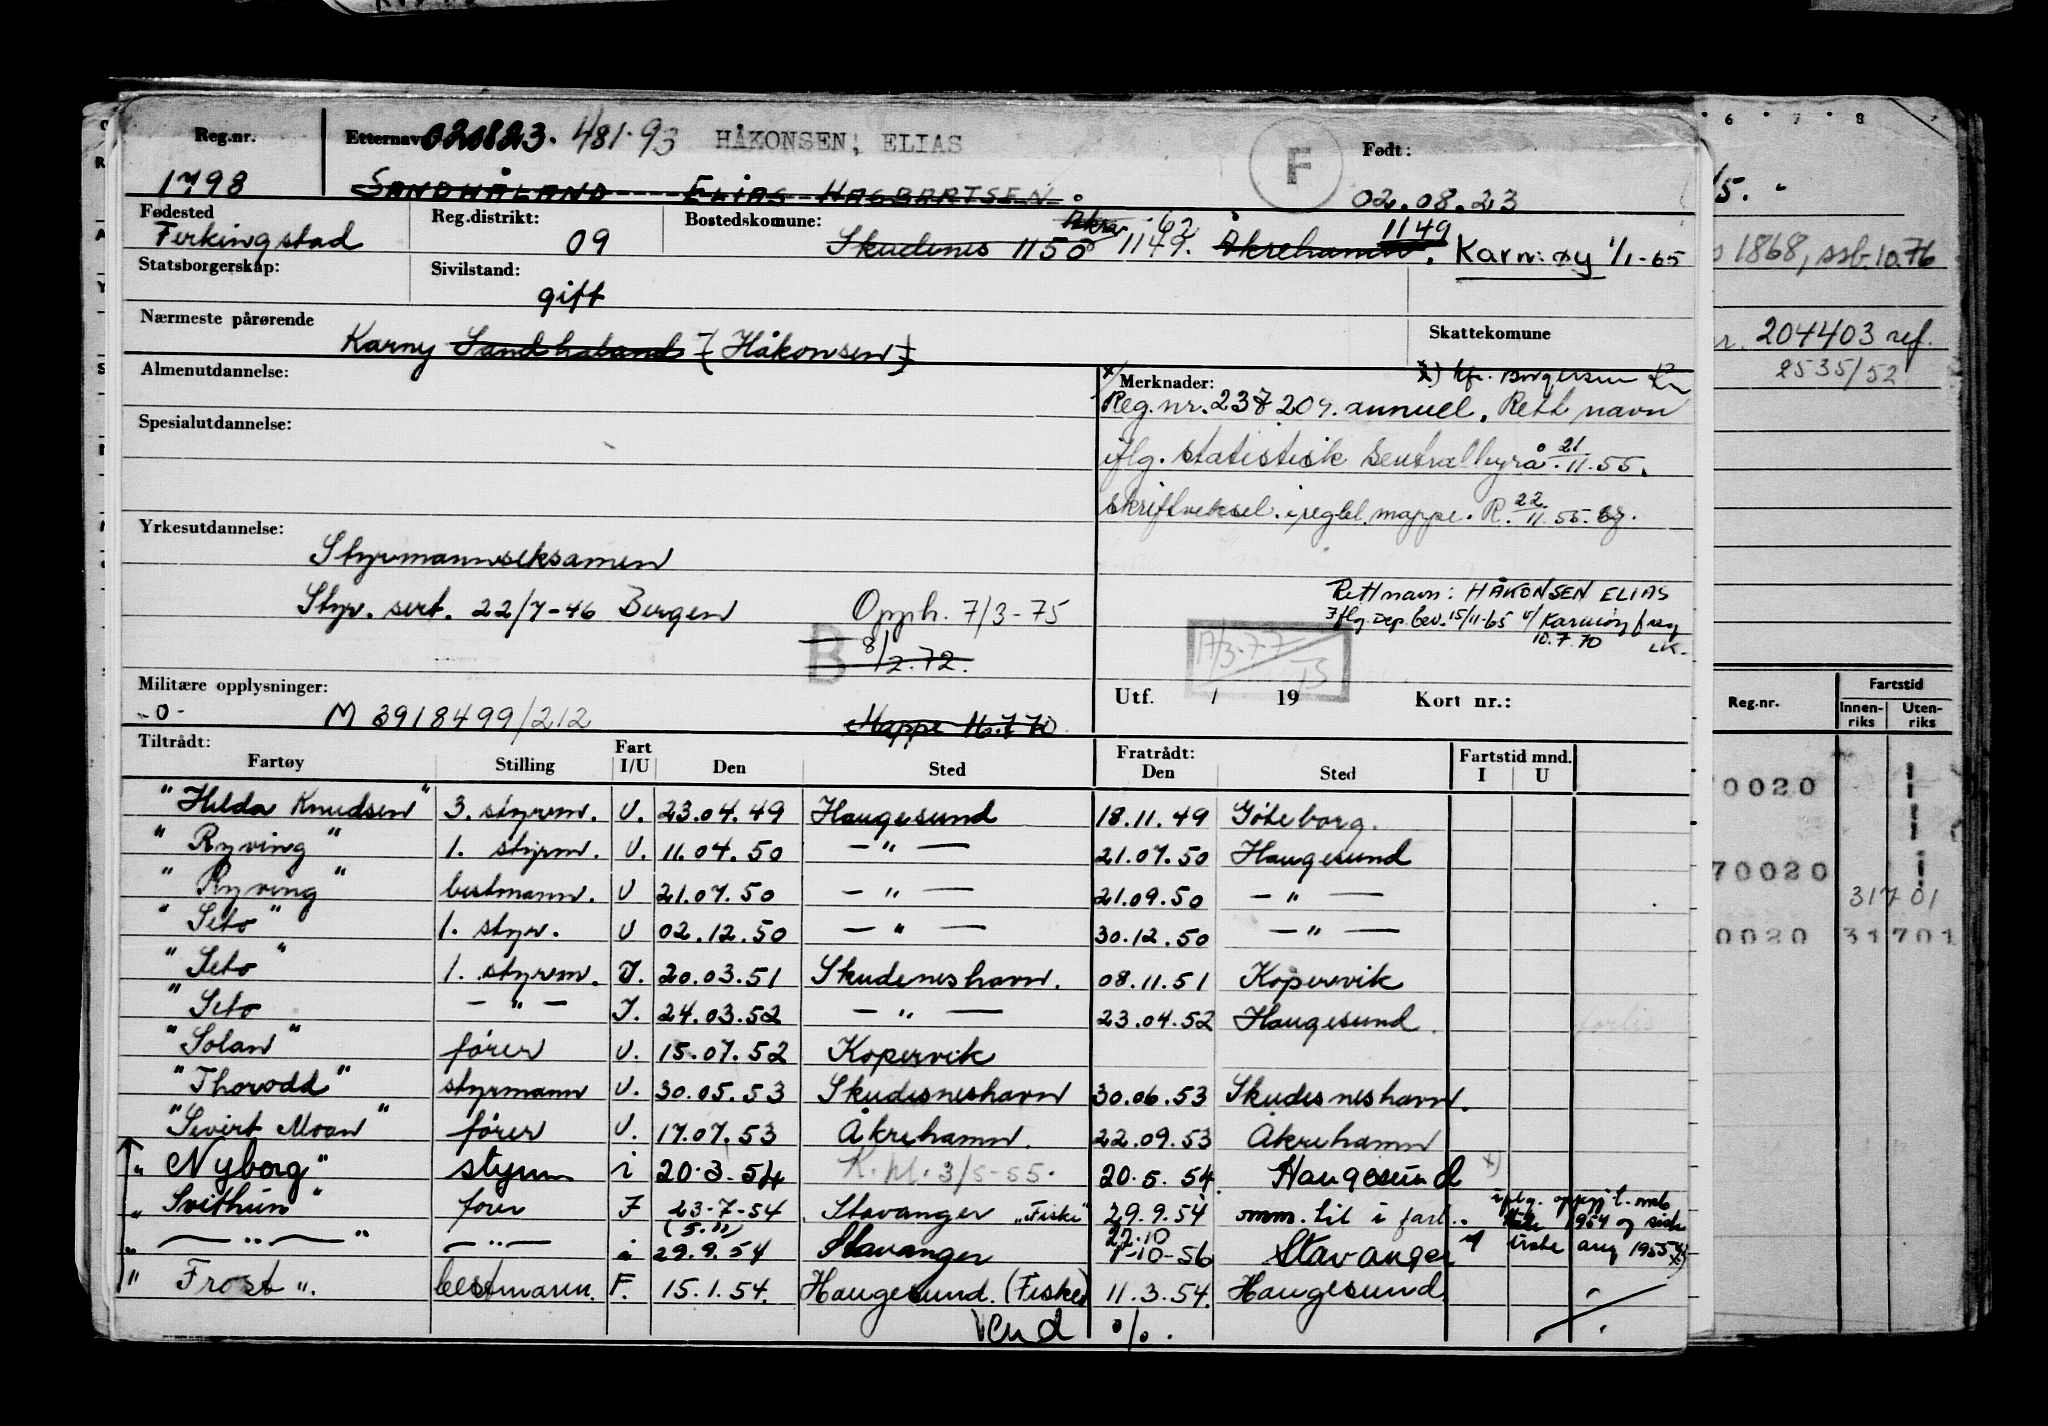 Reg.nr. Etternavn 020823. 481.93 HÅKONSEN, ELIAS F Født:
1798 SANDHÅLAND ELIAS HAGBARTSEN 02.08.23
Fødested Reg.distrikt: Bostedskomune: Åkra -62
Ferkingstad 09 Skudenes 1150 1149. Åkrehamn. 1149 Karmøy 1/1-65
Statsborgerskap: Sivilstand:
gift
Nærmeste pårørende Skattekomune
Karny Sandhaland (Håkonsen)
Almenutdannelse:
Spesialutdannelse:
Yrkesutdannelse:
Styrmannseksamen
Styr. sert. 22/7-46 Bergen Opph. 7/3-75
B 8/2.72.
Militære opplysninger:
-0- M 3918499/212 Mappe
x/ Merknader:
Reg.nr. 237204. annuel. Rett navn
iflg. Statistisk Sentralbyrå 21/11.55.
skriftveksel. i regbl. mappe. R. 22/11.55.
Rett navn: HÅKONSEN ELIAS
Iflg. Dep. bev. 15/11-65 v/ Karmøy f.reg
10.7.70 LK.
17/3-77
Utf. / 19 Kort nr.:
Tiltrådt: Fart Fratrådt: Fartstid mnd.
Fartøy Stilling I/U Den Sted Den Sted I U
"Hilda Knudsen" 3. styrm. U. 23.04.49 Haugesund 18.11.49 Göteborg.
"Ryving" 1. styrm. U. 11.04.50 — " — 21.07.50 Haugesund
"Ryving" bestmann. U 21.07.50 — " — 21.09.50 — " —
"Seto" 1. styr. U 02.12.50 — " — 30.12.50 — " —
"Seto" 1. styrm. I. 20.03.51 Skudeneshavn. 08.11.51 Kopervik
"Seto — " — I. 24.03.52 — " — 23.04.52 Haugesund.
"Solan" fører U. 15.07.52 Kopervik
"Thorodd" styrmann U. 30.05.53 Skudesneshavn 30.06.53 Skudesneshavn.
"Sivert Moan" fører U. 17.07.53 Åkrehamn. 22.09.53 Åkrehamn
"Nyborg" styrm i 20-3-54 K. pl. 3/5-55. 20.5.54. Haugesund x)
"Svithun" fører I 23-7-54 Stavanger "Fiske" 29.9.54 omm. til i fart..
(5.11) 22.10
" — " — " — " — i 29.9.54 Stavanger 1-10-56 Stavanger
iflg. oppgj t. mnb
1954 og siste
aug 1955
"Frost". bestmann. F. 15.1.54. Haugesund. (Fiske) 11.3.54. Haugesund.
Vend o/o.
6 7 8
1868, ssb. 10.76
204403 ref.
2535/52
Reg.nr. Fartstid
Innenriks Utenriks
0020
70020
31701
0020 31701